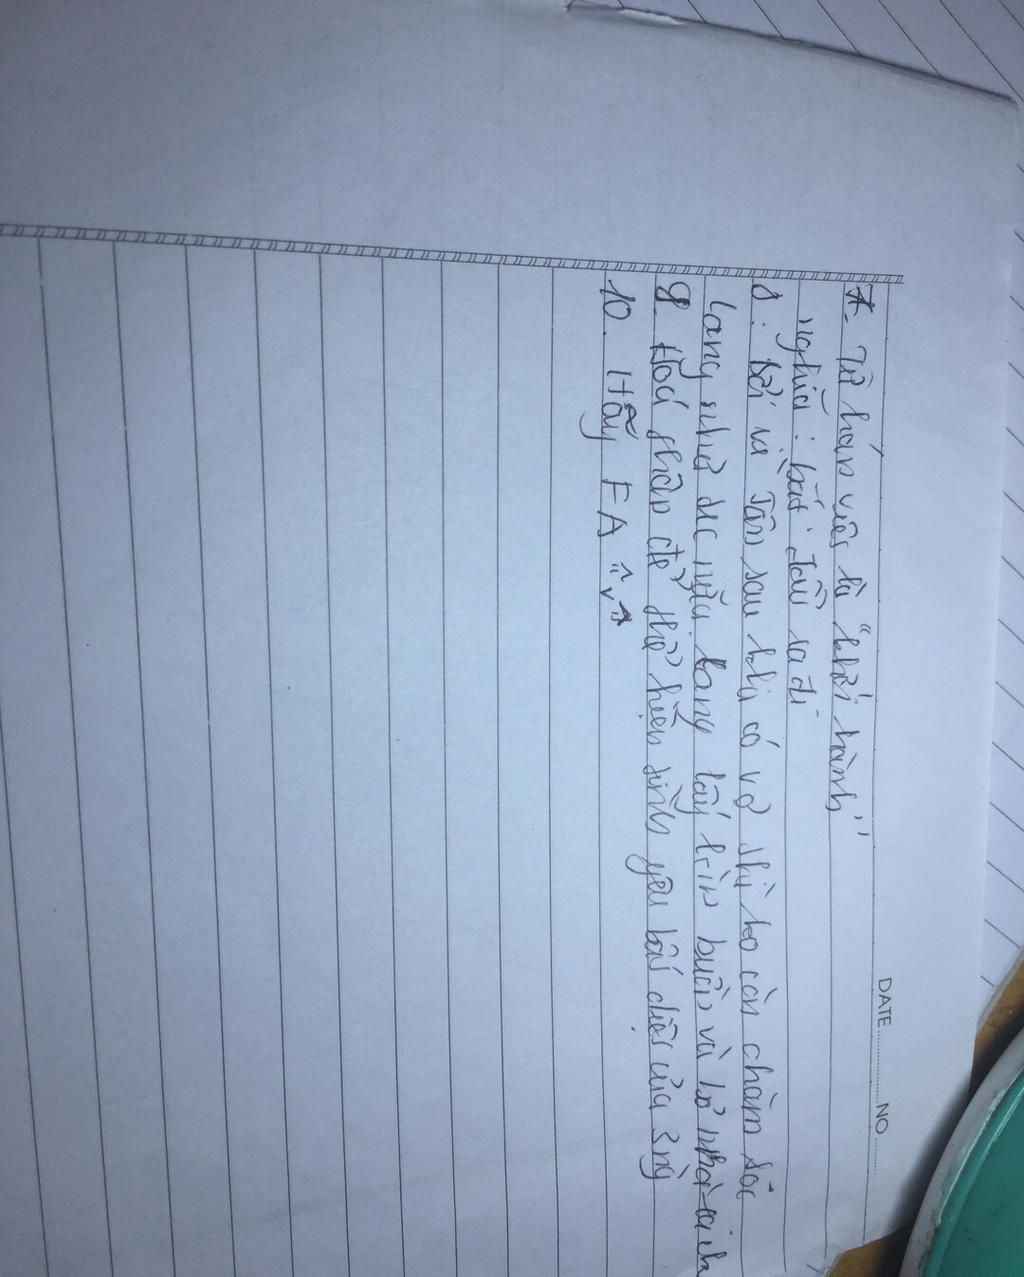 DATE............NO..........
7. Từ hán việt là "khởi hành"
nghĩa : bắt đầu ra đi
8 : Bởi vì Tân sau khi có vợ thì ko còn chăm sóc
Lang như xưa nữa. Lang lấy làm buồn và bỏ nhà đi
9. Hoá thân để thể hiện tình yêu bất diệt của 3 ng
10. Hãy FA